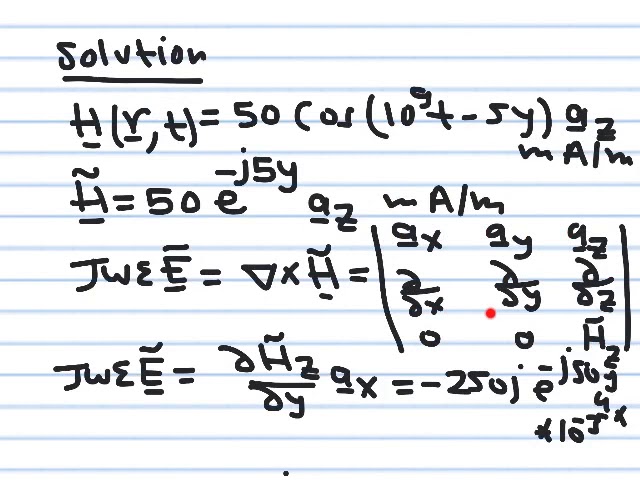 Solution
H(r,t) = 50 Cos(10⁹t - 5y) a_z
m A/m
H̃ = 50 e^{-j5y} a_z m A/m
JωƐE̅ = ∇×H̃ = | a_x a_y a_z
∂/∂x ∂/∂y ∂/∂z
0 0 H̃_z |
JωƐẼ = ∂H̃_z/∂y a_x = -250j e^{-j50y}